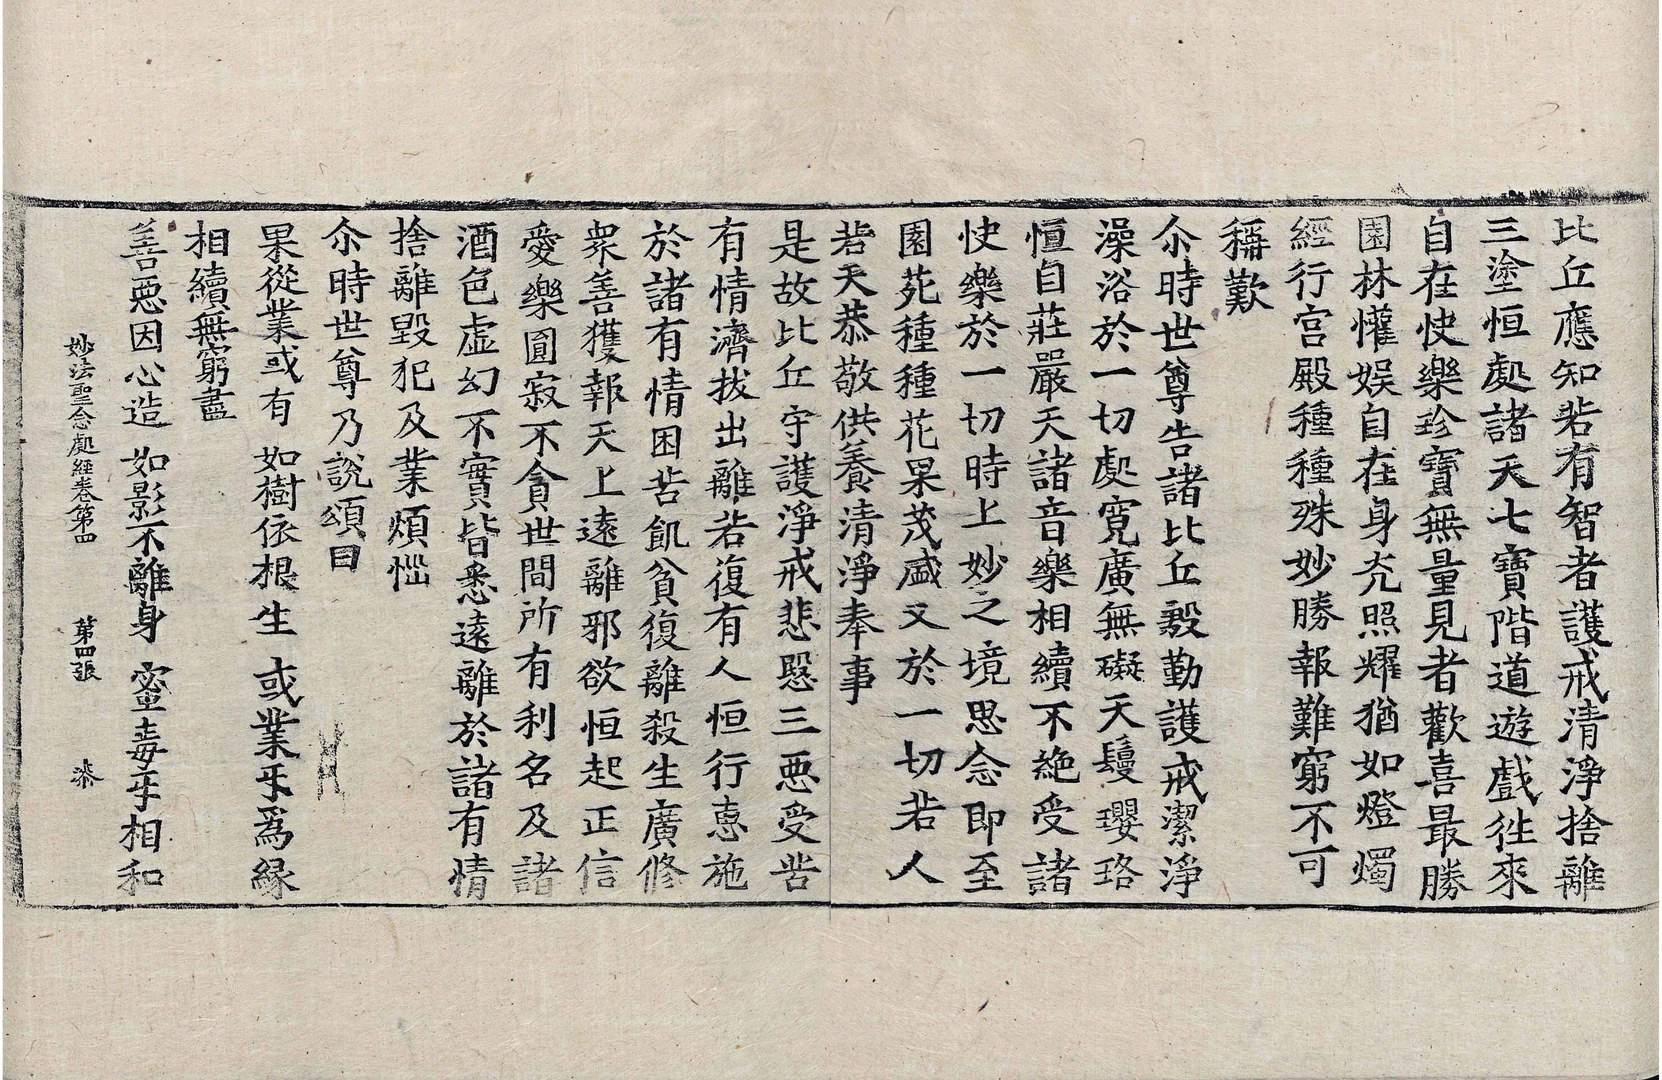 比丘應知若有智者護戒清淨捨離
三塗恒處諸天七寶階道遊戲往來
自在快樂珍寶無量見者歡喜最勝
園林懽娛自在身光照耀猶如燈燭
經行宮殿種種殊妙勝報難窮不可
稱歎
尒時世尊告諸比丘慇勤護戒潔淨
澡浴於一切處寬廣無礙天鬘瓔珞
恒自莊嚴天諸音樂相續不絶受諸
快樂於一切時上妙之境思念即至
園苑種種花果茂盛又於一切若人
若天恭敬供養清淨奉事
是故比丘守護淨戒悲愍三惡受苦
有情濟拔出離若復有人恒行惠施
於諸有情困苦飢貧復離殺生廣修
衆善獲報天上遠離邪欲恒起正信
愛樂圓寂不貪世間所有利名及諸
酒色虛幻不實皆悉遠離於諸有情
捨離毀犯及業煩惱
尒時世尊乃說頌曰
果從業或有 如樹依根生 或業互爲緣
相續無窮盡
善惡因心造 如影不離身 蜜毒互相和
妙法聖念處經卷第四 第四張 漆